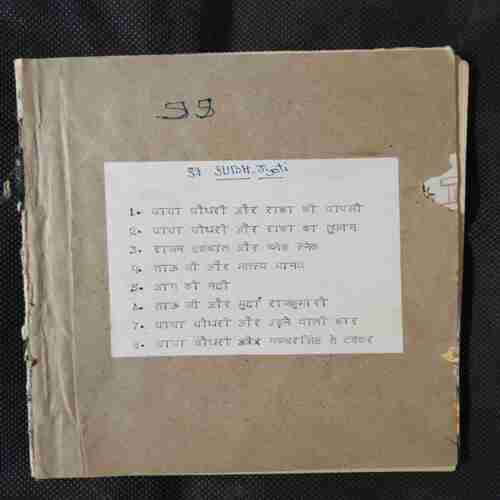 99
चाचा चौधरी और राका की वापसी
2. चाचा चौधरी और राका का
3. राजन इकबाल और
4. ताऊ जी और मानव
5. आग की नदी
6. ताऊ जी और मुर्दा राजकुमारी
7. चाचा चौधरी और उड़ने वाली कार
8. चाचा चौधरी और गब्बरसिंह से टक्कर